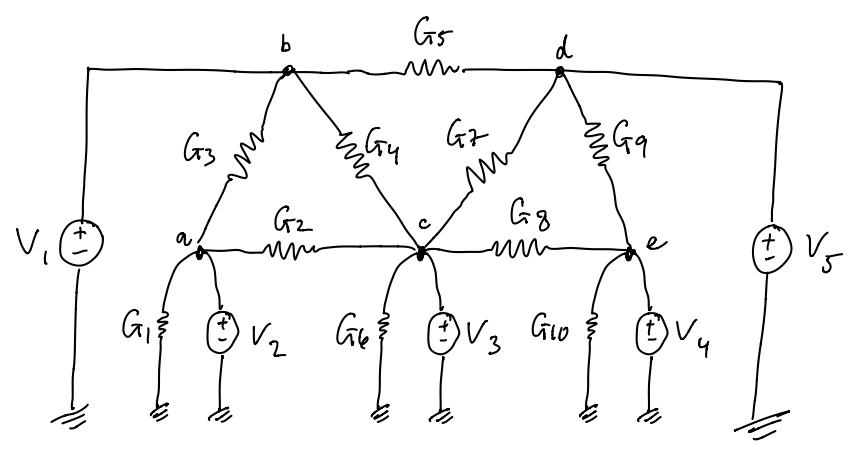 b G5 d
G3 G4 G7 G9
a G2 c G8 e
V1 V5
G1 V2 G6 V3 G10 V4